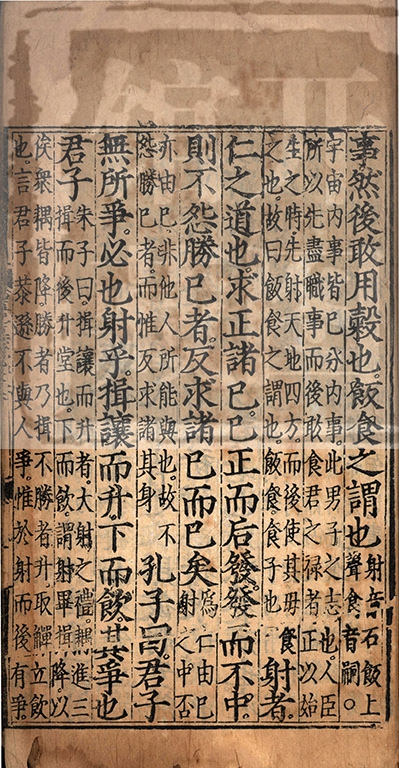 事然後敢用穀也。飯食之謂也射音石飯上聲食音嗣。
宇宙內事皆己分內事。此男子之志也。人臣
所以先盡職事而後敢食君之祿者正以始
生之時先射天地四方。而後使其毋食
之也。故曰飯食之謂也。飯食食子也射者。
仁之道也。求正諸己。己正而后發。發而不中。
則不怨勝己者。反求諸己而已矣爲仁由己射之中否
亦由己非他人所能與也。故不
怨勝己者。而惟反求諸其身孔子曰。君子
無所爭。必也射乎。揖讓而升下而飲。其爭也
君子朱子曰。揖讓而升者。大射之禮。耦進三
揖而後升堂也。下而飲。謂射畢揖降。以
俟衆耦皆降勝者乃揖不勝者升。取觶立飲
也言君子恭遜不與人爭。惟於射而後有爭。